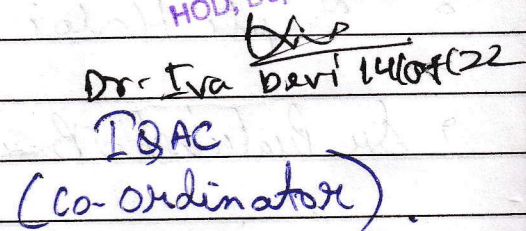 HOD,
Dr. Iva Devi 14/07/22
IQAC
(Co-ordinator).